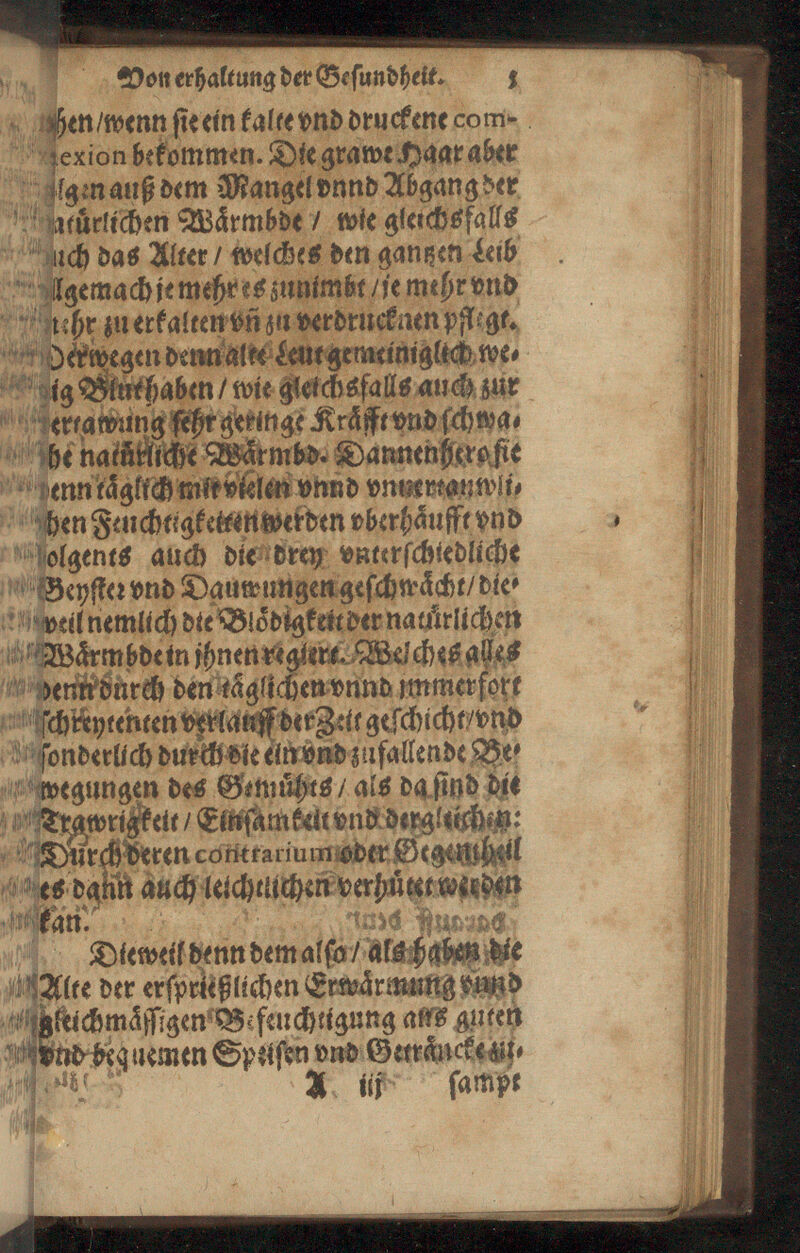 Von erhaltung der Geſundheit. 5
hen/wenn ſie ein kalte vnd druckene com-
lexion bekommen. Die grawe Haar aber
lgen auß dem Mangel vnnd Abgang der
atuͤrlichen Waͤrmbde / wie gleichsfalls
uch das Alter / welches den gantzen Leib
llgemach je mehr es zunimbt / je mehr vnd
mehr zu erkalten vñ zu verdrucknen pflegt.
Derwegen denn alte Leut gemeiniglich we-
nig Blut haben / wie gleichsfalls auch zur
ertawung ſehr geringe Kraͤfft vnd ſchwa-
che natuͤrliche Waͤrmbd. Dannenhero ſie
denn taͤglich mit vielen vnnd vnuertawli-
chen Feuchtigkeiten werden vberhaͤufft vnd
folgents auch die drey vnterſchiedliche
Beyſter vnd Dauwungen geſchwaͤcht/ die-
weil nemlich die Bloͤdigkeit der natuͤrlichen
Waͤrmbde in jhnen regiert. Welches alles
denn durch den taͤglichen vnnd jmmerfort
ſchreytenten verlauff der Zeit geſchicht/vnd
ſonderlich durch die ein vnd zufallende Be-
wegungen des Gemuͤhts / als da ſind die
Trawrigkeit / Einſamkeit vnd dergleichen:
Durch deren contrarium oder Gegentheil
es dann auch leichtlichen verhuͤtet werden
kan.
Dieweil denn dem alſo / als haben die
Alte der erſprießlichen Erwaͤrmung vnnd
gleichmaͤſſigen Befeuchtigung aus guten
vnd bequemen Speiſen vnd Getraͤncke all-
A iij ſampt